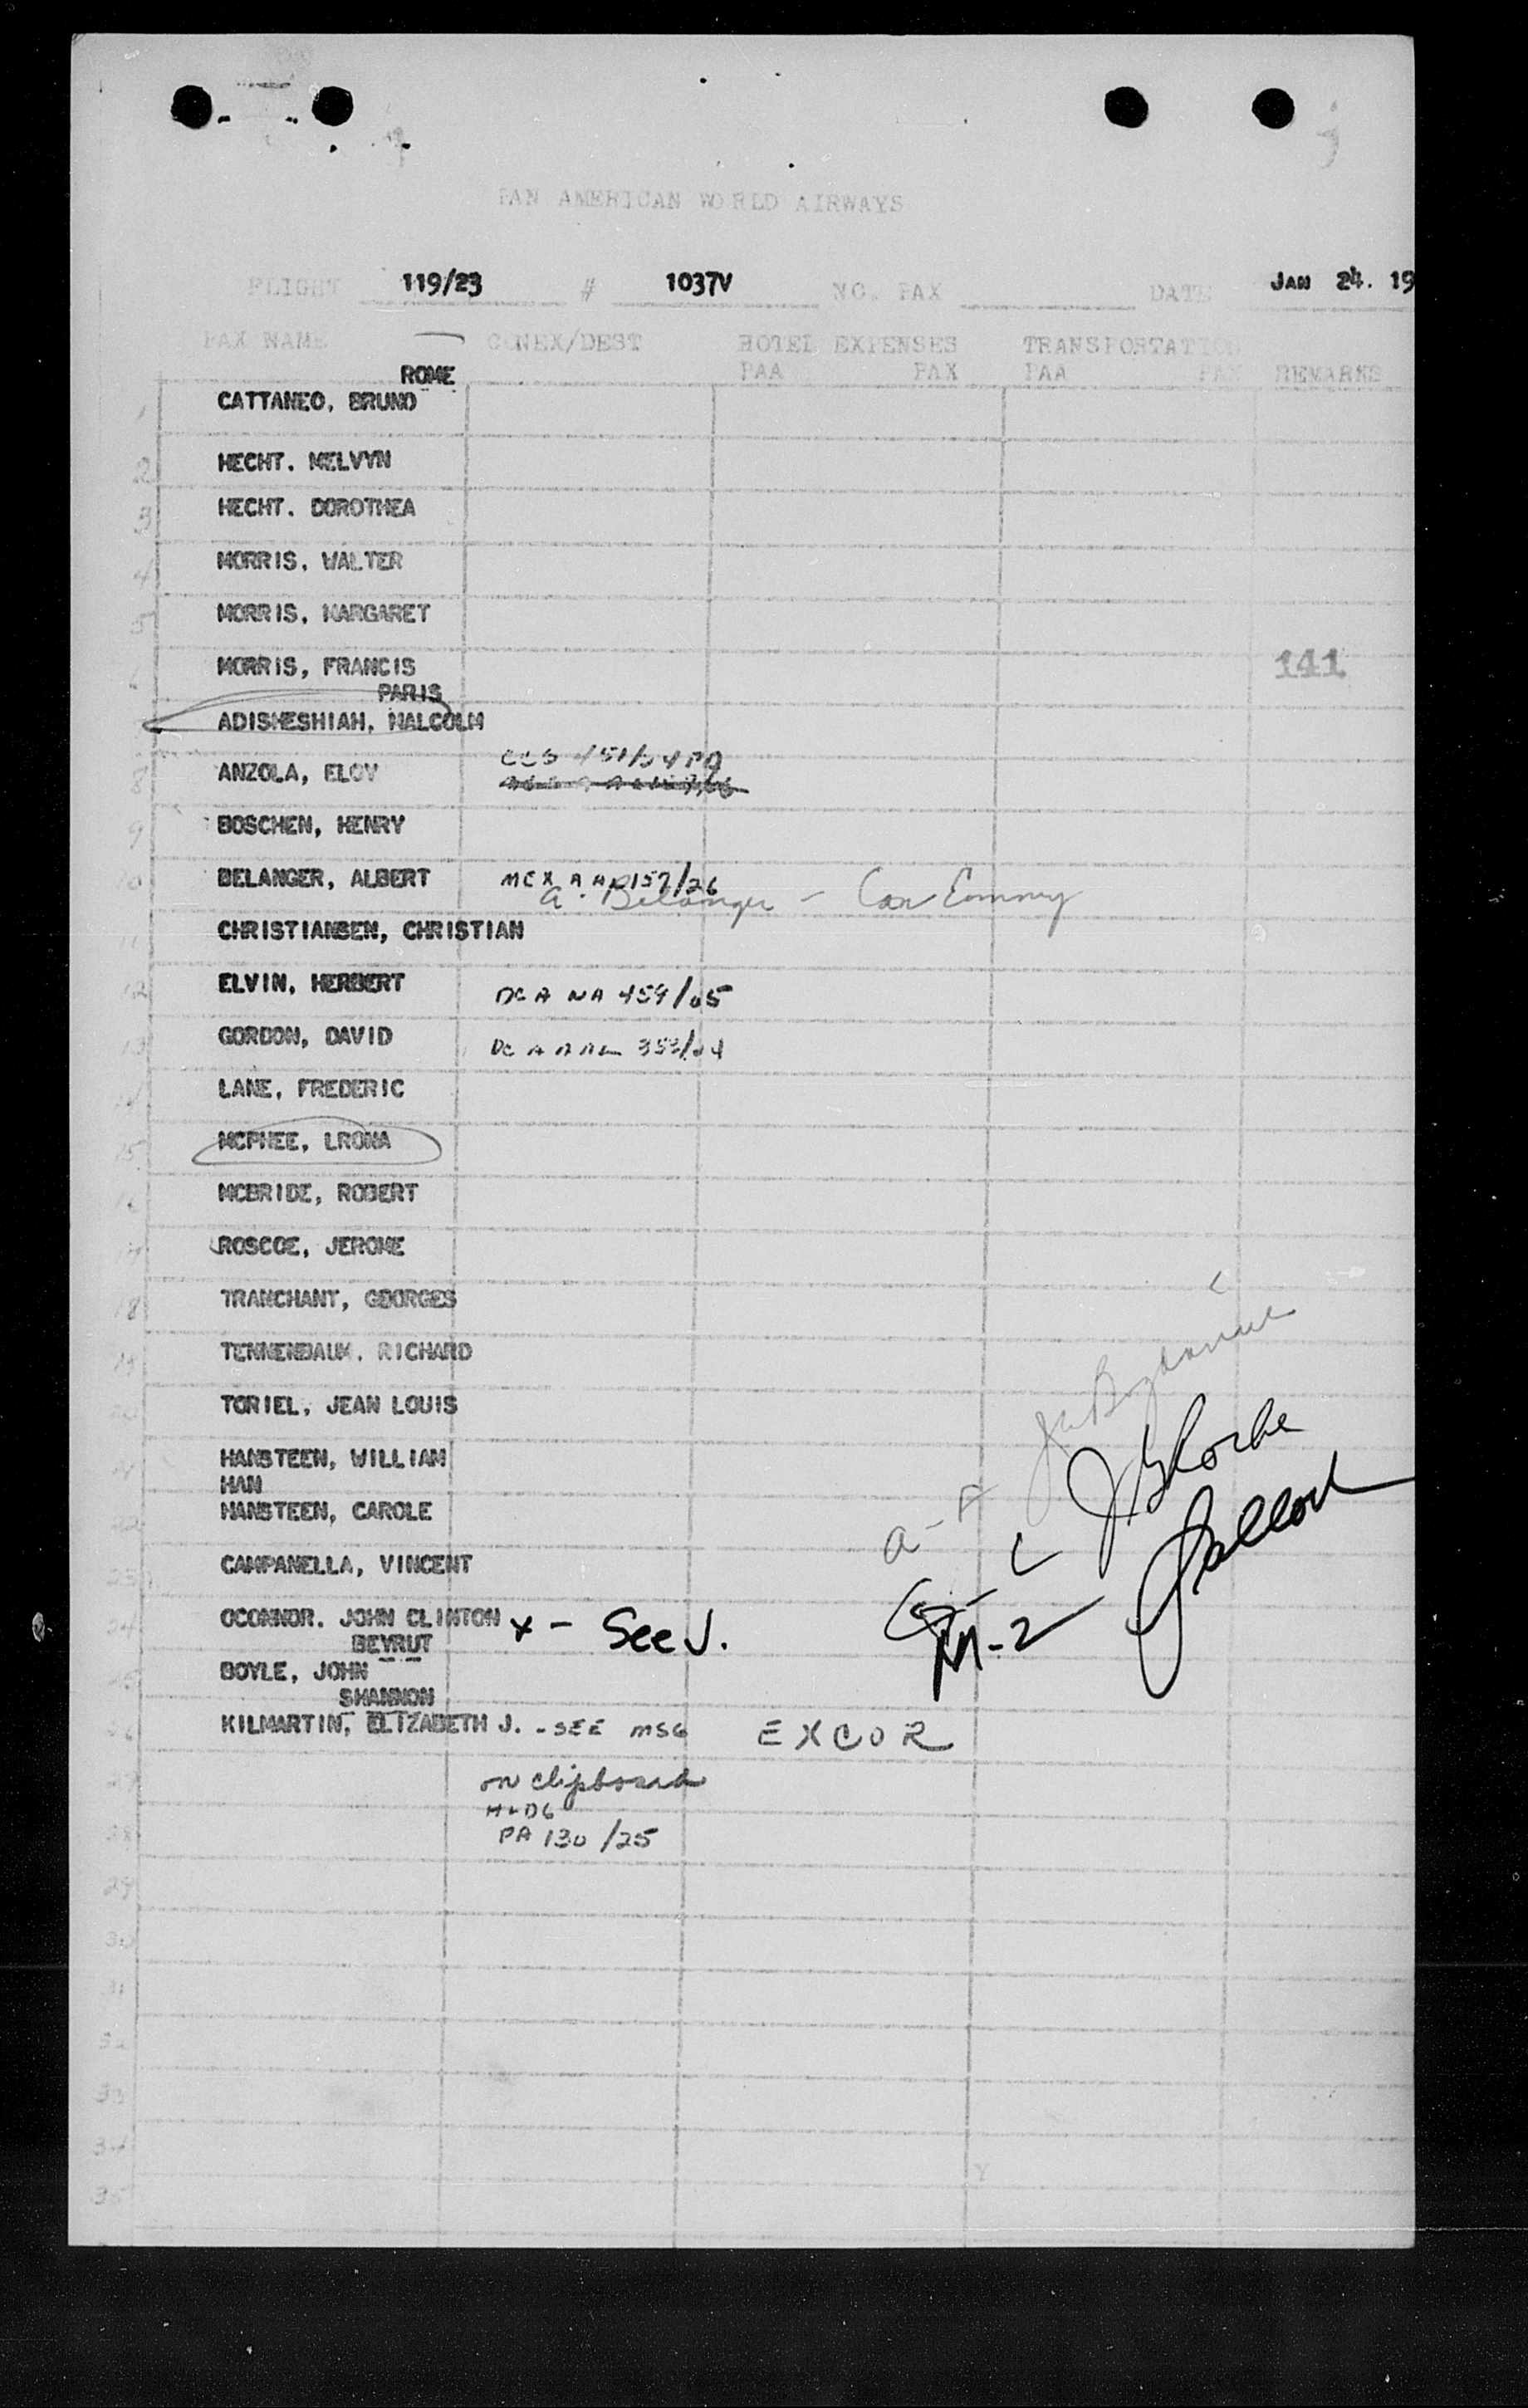 PAN AMERICAN WORLD AIRWAYS
FLIGHT 119/23 # 1037V NO. PAX DATE JAN 24. 19
PAX NAME CONEX/DEST HOTEL EXPENSES TRANSPORTATION
PAA PAX PAA PAX REMARKS
ROME
1 CATTANEO, BRUNO
2 HECHT. MELVYN
3 HECHT. DOROTHEA
4 MORRIS, WALTER
5 MORRIS, MARGARET
6 MORRIS, FRANCIS 141
PARIS
ADISHESHIAH, MALCOLM
8 ANZOLA, ELOY
9 BOSCHEN, HENRY
10 BELANGER, ALBERT MEX AA 157/26
A. Belanger -
11 CHRISTIANSEN, CHRISTIAN
12 ELVIN, HERBERT DCA NA 459/05
13 GORDON, DAVID DCA AAL 353/24
14 LANE, FREDERIC
15 MCPHEE, LRONA
16 MCBRIDE, ROBERT
17 ROSCOE, JEROME
18 TRANCHANT, GEORGES
19 TENNENBAUM, RICHARD
20 TORIEL, JEAN LOUIS
21 HANSTEEN, WILLIAM
HAN
22 HANSTEEN, CAROLE
A-F
23 CAMPANELLA, VINCENT
24 OCONNOR. JOHN CLINTON X - See J.
M-Z
BEYRUT
25 BOYLE, JOHN
SHANNON
26 KILMARTIN, ELIZABETH J. - SEE MSG EXCOR
27 on clipboard
28 PA 130/25
29
30
31
32
33
34
35